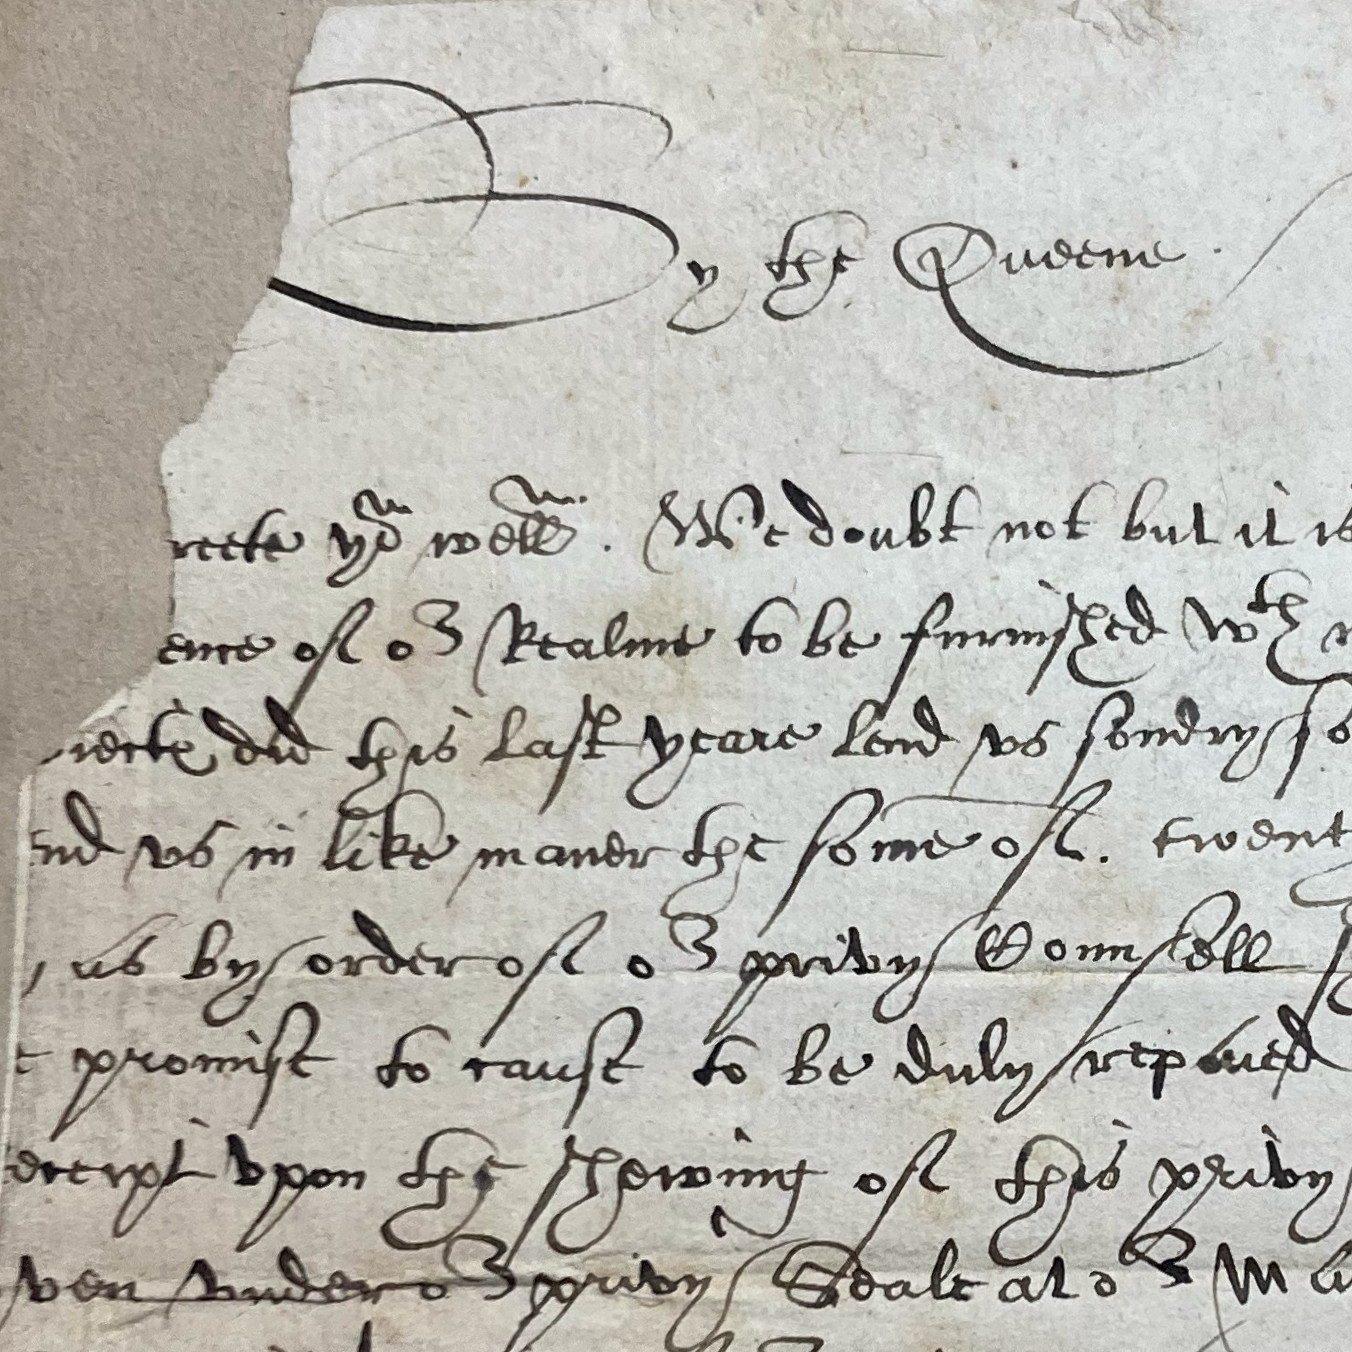 By the Queene
reete yow well. We doubt not but it is
ence of or Realme to be furnished wth
iectes did this last yeare lend vs sondry so
end vs in like maner the some of. twent
as by order of or privy Counsell
promise to cause to be duly repaied
eceipt vpon the shewing of this privy
ven vnder or privy Seale at or Ma